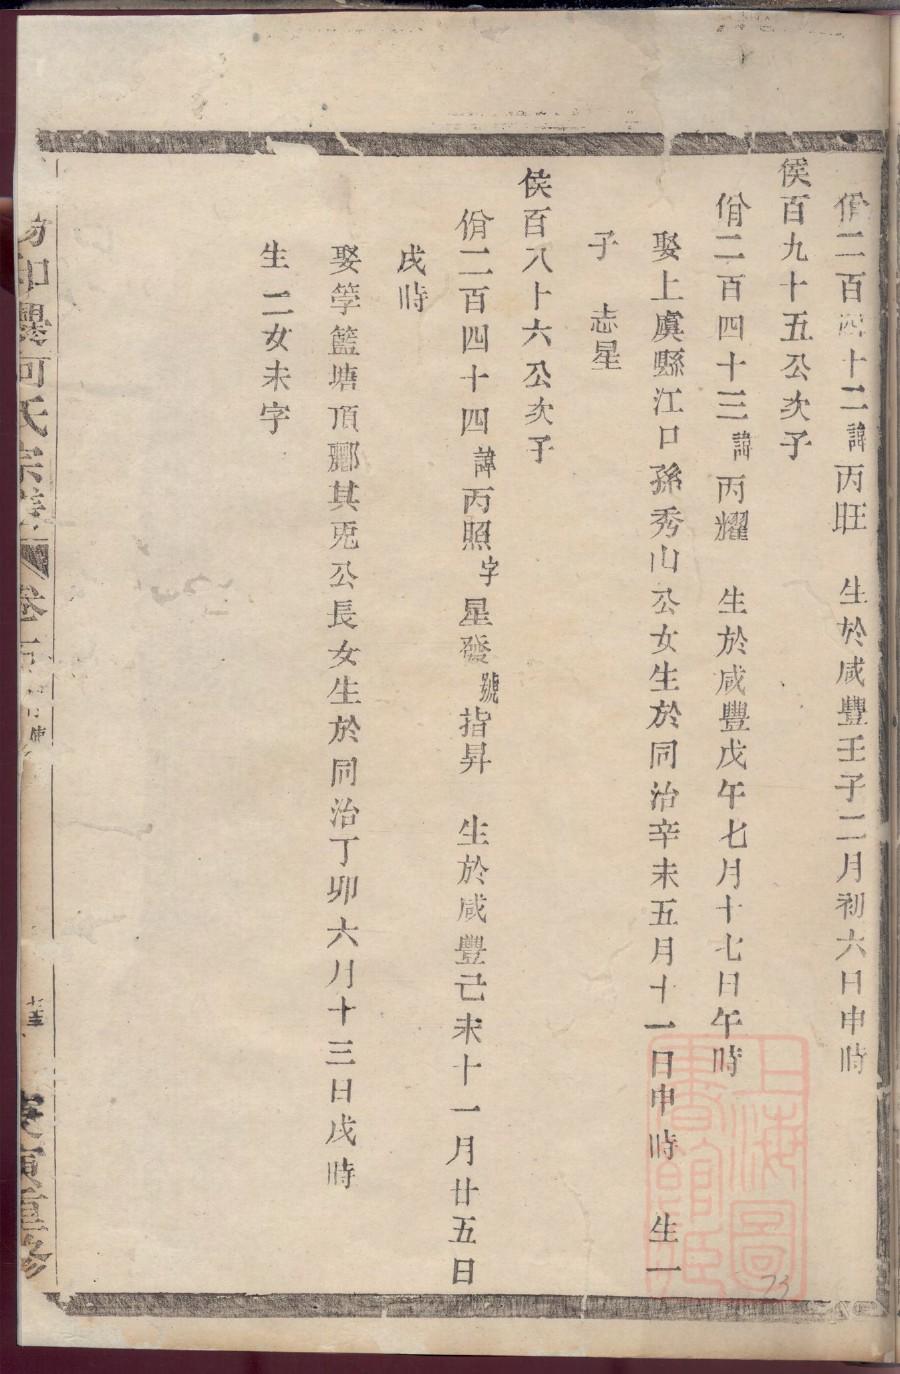 佾二百四十二諱丙旺　生於咸豐壬子二月初六日申時
俟百九十五公次子
佾二百四十三諱丙耀　生於咸豐戊午七月十七日午時
娶上虞縣江口孫秀山公女生於同治辛未五月十一日申時　生一
子　志星
俟百八十六公次子
佾二百四十四諱丙照字星發號指昇　生於咸豐己未十一月廿五日
戌時
娶箰籃塘頂酈其兎公長女生於同治丁卯六月十三日戌時
生二女未字
何氏宗譜　卷
寅重修
上海圖
書館
73